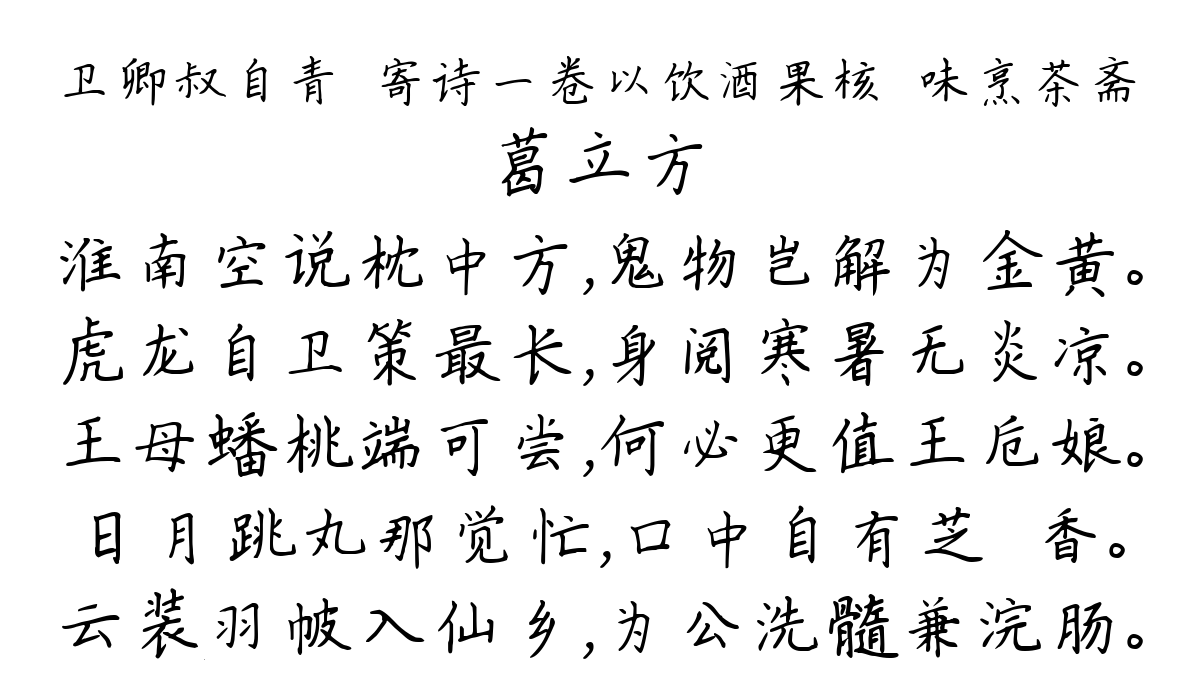 卫卿叔自青 寄诗一卷以饮酒果核 味烹茶斋
葛立方
淮南空说枕中方,鬼物岂解为金黄。
虎龙自卫策最长,身阅寒暑无炎凉。
王母蟠桃端可尝,何必更值王卮娘。
日月跳丸那觉忙,口中自有芝 香。
云装羽帔入仙乡,为公洗髓兼浣肠。